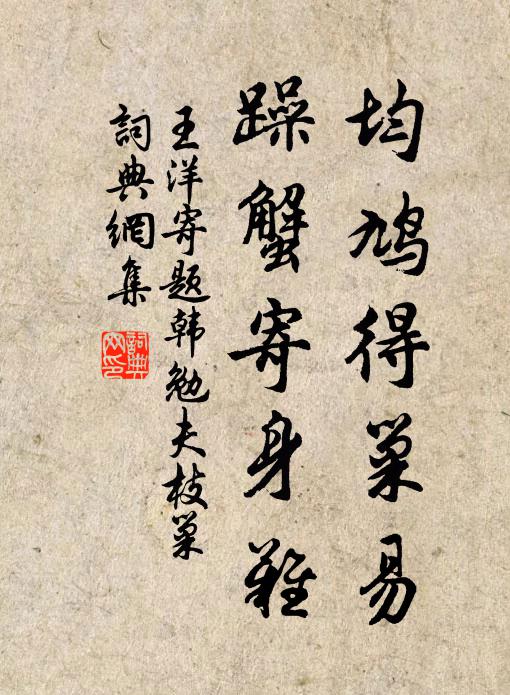 均鸠得巢易
躁蟹寄身难
王洋寄题韩勉夫枝巢
詞典網集
詞典
网印